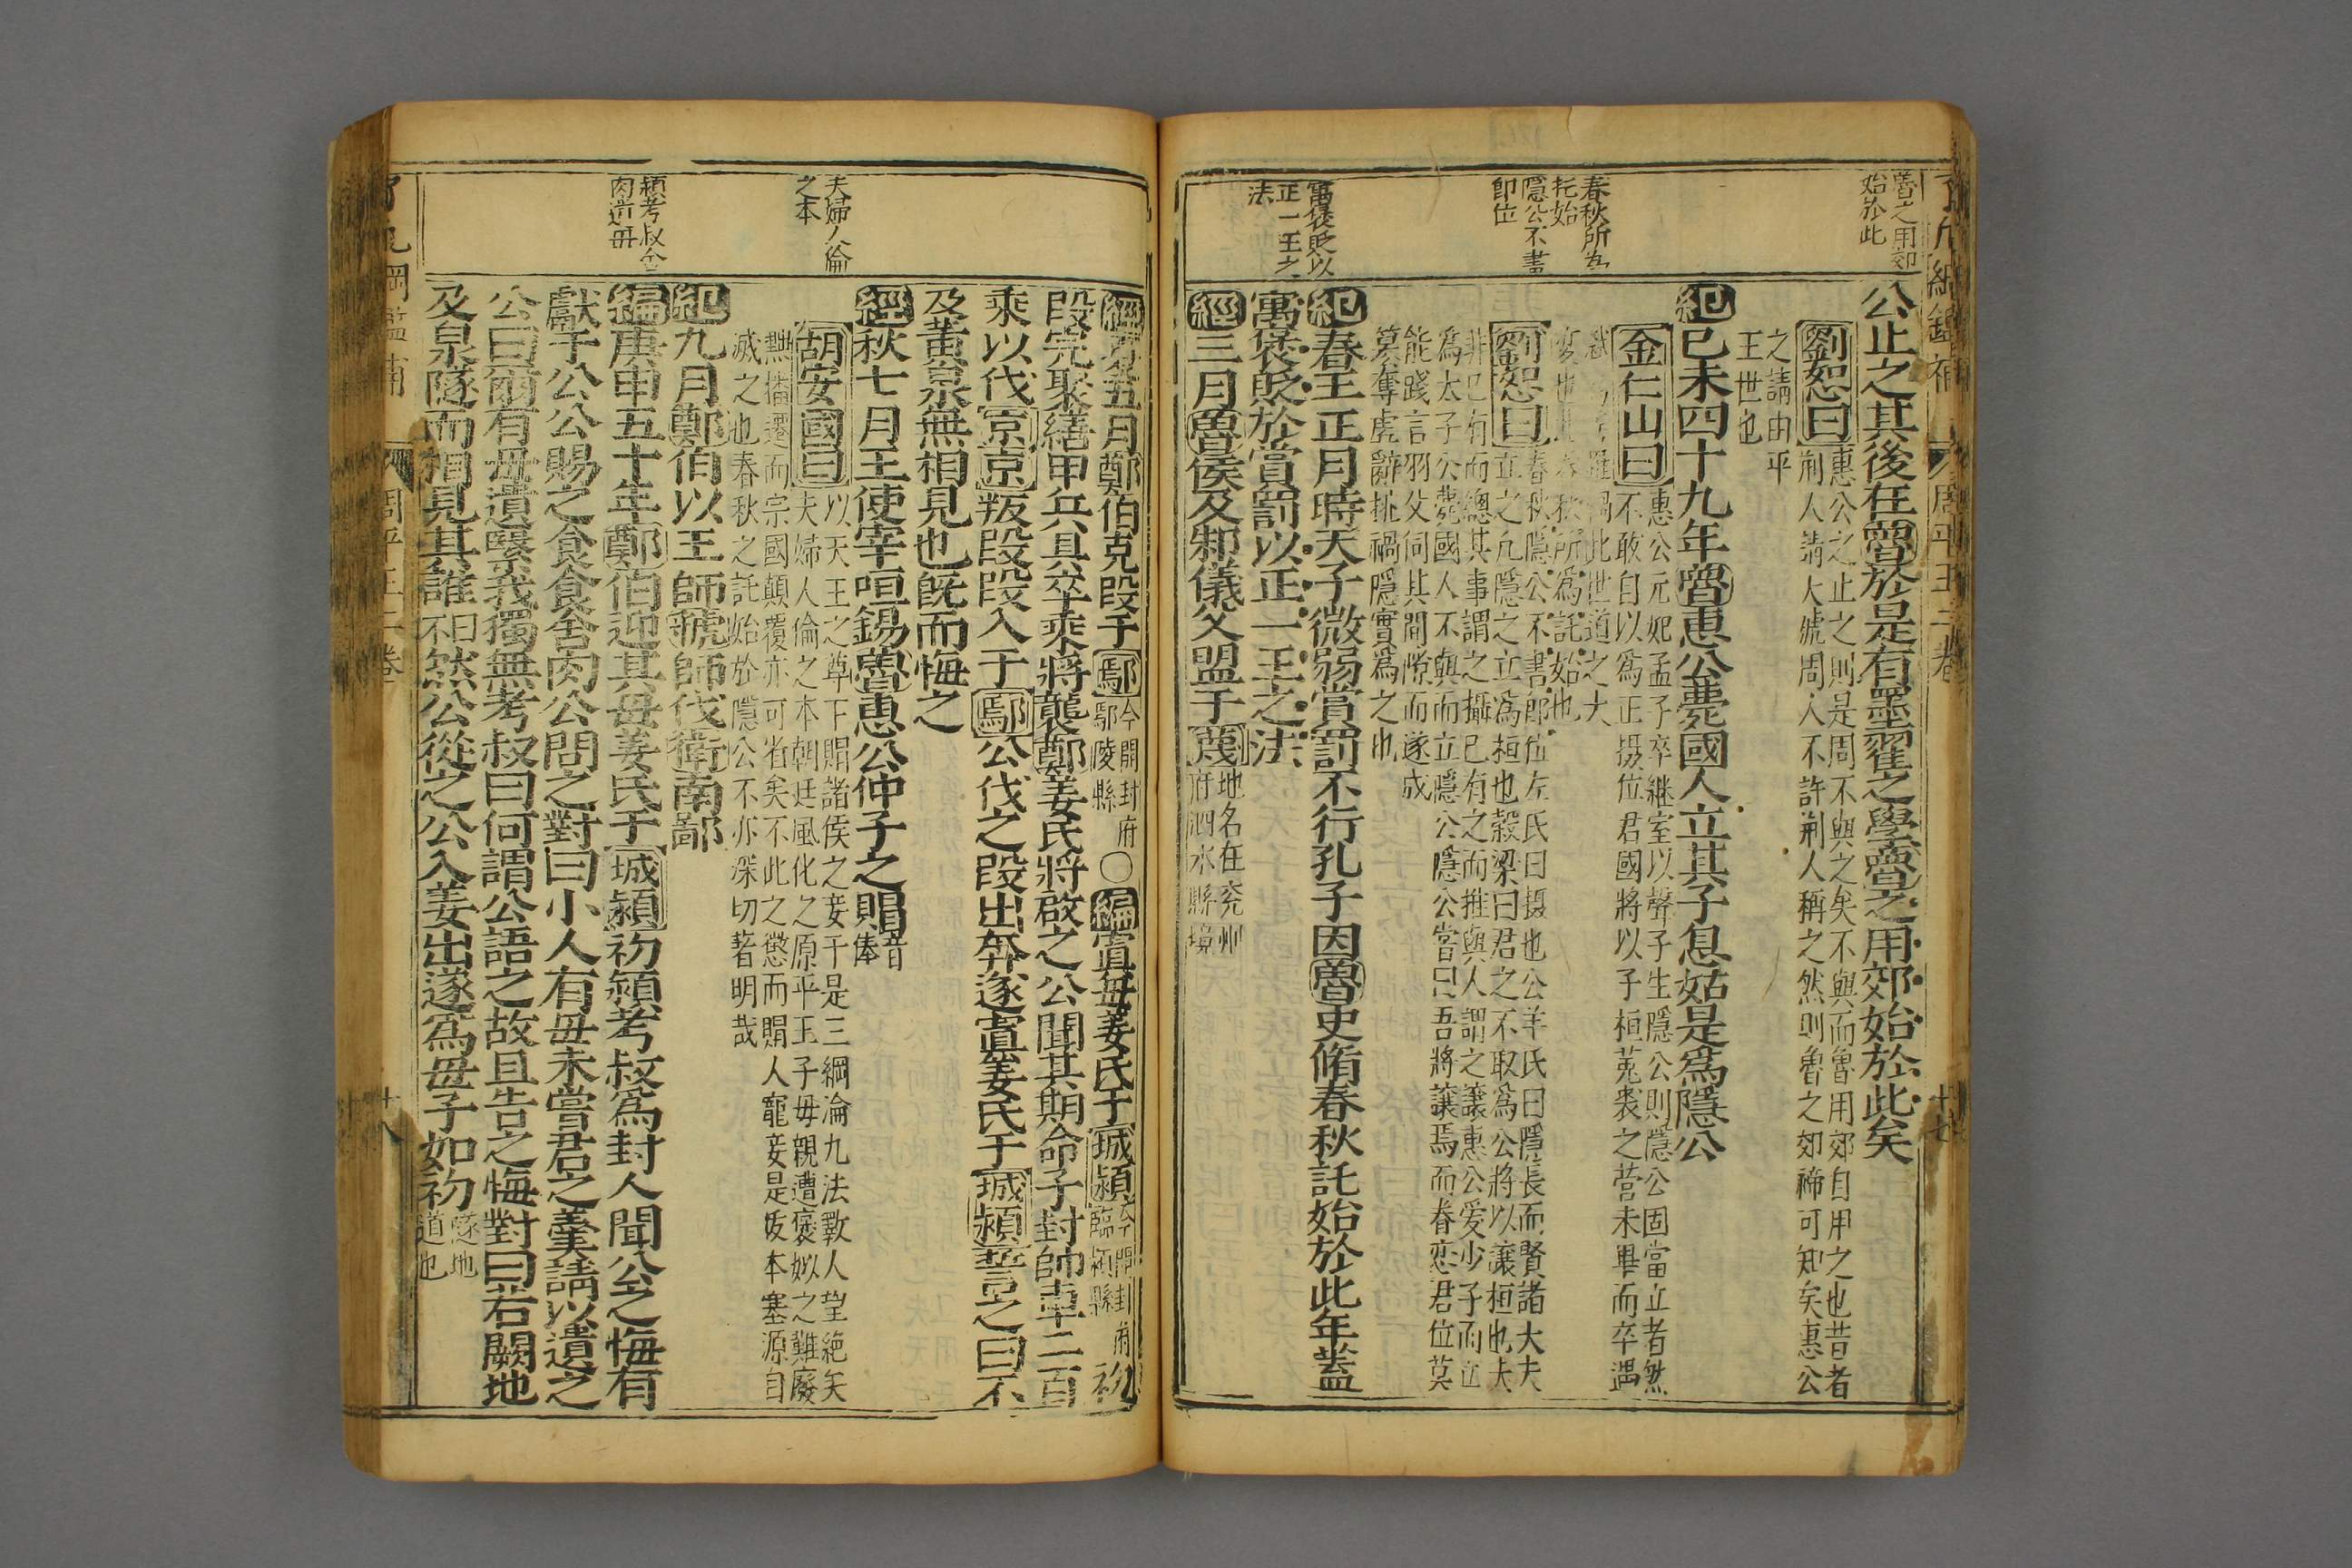 魯之用郊
始於此
公止之其後在魯於是有墨翟之學魯之用郊始於此矣
劉恕曰惠公之止之則是周不與之矣不與而魯用郊自用之也昔者
荊人請大號周人不許荊人稱之然則魯之郊禘可知矣惠公
之請由平
王世也
紀己未四十九年魯惠公薨國人立其子息姑是爲隱公
金仁山曰惠公元妃孟子卒継室以聲子生隱公則隱公固當立者然
不敢自以爲正摄位君國將以子桓菟裘之营未畢而卒遇
此世道之大
變也春秋所爲託始也
春秋所為
托始
隱公不書
即位
劉恕曰春秋隱公不書即位左氏曰摄也公羊氏曰隱長而賢諸大夫
立之凢隱之立爲桓也榖梁曰君之不取爲公將以讓桓也夫
非己有而總其事謂之攝己有之而推與人謂之讓惠公爱少子而立
爲太子公薨國人不與而立隱公隱公嘗曰吾將讓焉而眷恋君位莫
能踐言羽父伺其間隙而遂成
篡奪虎辭挑禍隱實爲之也
紀春王正月時天子微弱賞罰不行孔子因魯史脩春秋託始於此年蓋
寓褒貶以
正一王之
法
寓褒貶於賞罰以正一王之法
經三月魯侯及邾儀父盟于蔑地名在兖州
府泗水縣境
經夏五月鄭伯克段于鄢今開封府
鄢陵縣○編寘母姜氏于城潁今開封府
臨潁縣初
段完聚繕甲兵具卒乘將襲鄭姜氏將啟之公聞其期命子封帥車二百
乘以伐京京叛段段入于鄢公伐之段出奔遂寘姜氏于城潁誓之曰不
及黃泉無相見也既而悔之
經秋七月王使宰咺錫魯惠公仲子之賵音
俸
夫婦人倫
之本
胡安國曰以天王之尊下賵諸侯之妾于是三綱淪九法斁人望絶矣
夫婦人倫之本朝廷風化之原平王子母親遭褒姒之難廢
黜播遷而宗國顛覆亦可省矣不此之懲而賵人寵妾是拔本塞源自
滅之也春秋之託始於隱公不亦深切著明哉
紀九月鄭伯以王師虢師伐衛南鄙
潁考叔舍
肉遺母
編庚申五十年鄭伯迎其母姜氏于城潁初潁考叔爲封人聞公之悔有
獻于公公賜之食食舍肉公問之對曰小人有母未嘗君之羹請以遺之
公曰爾有母遺繄我獨無考叔曰何謂公語之故且告之悔對曰若闕地
及泉隧而相見其誰曰不然公從之公入姜出遂爲母子如初隧地
道也
周平王二卷
十八